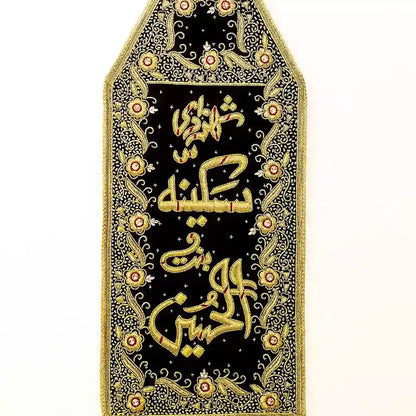 شهزادی
سکینہ
بنت
الحسین